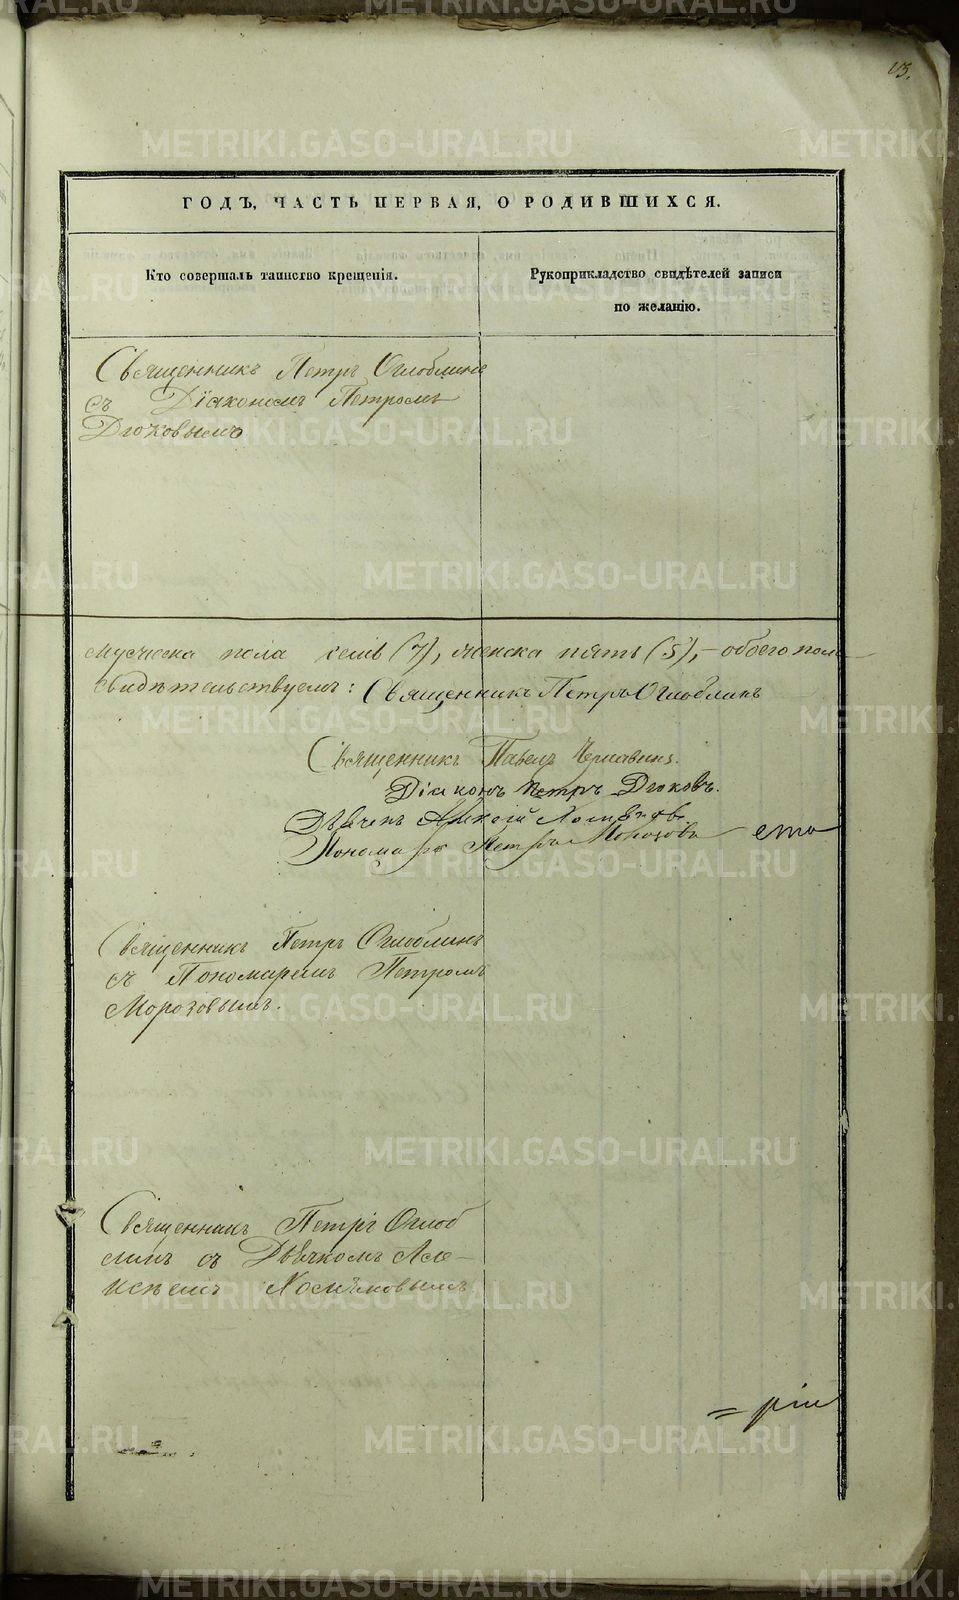 13.
ГОДЪ, ЧАСТЬ ПЕРВАЯ, О РОДИВШИХСЯ.
Кто совершалъ таинство крещенія.
Рукоприкладство свидѣтелей записи
по желанію.
Священникъ Петръ Оглоблинъ
съ Діакономъ Петромъ
Дюковымъ
мужеска пола семь (7), женска пять (5),– обоего пола
свидѣтельствуемъ: Священникъ Петръ Оглоблинъ
Священникъ Павелъ
Діаконъ Петръ Дюковъ.
Дьячекъ Алексій
Пономарь Петръ Морозовъ
Священникъ Петръ Оглоблинъ
съ Пономаремъ Петромъ
Морозовымъ.
Священникъ Петръ Оглоб
линъ съ Дьячкомъ Але–
ксѣемъ
METRIKI.GASO-URAL.RU